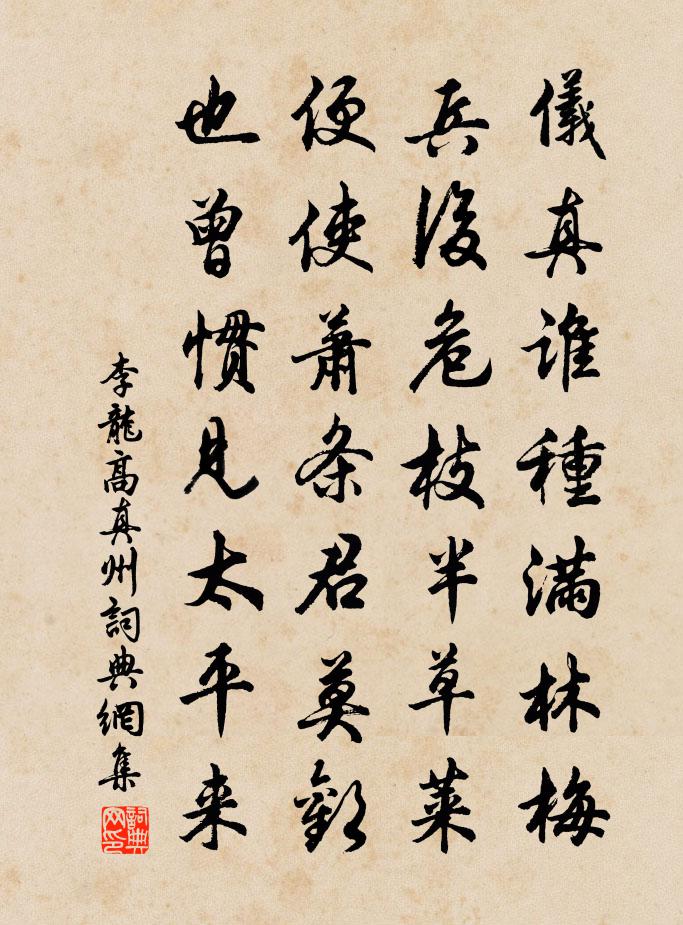 儀真誰種滿林梅
兵後危枝半草萊
便使蕭条君莫歎
也曾慣見太平来
李龍高真州詞典網集
詞典网印